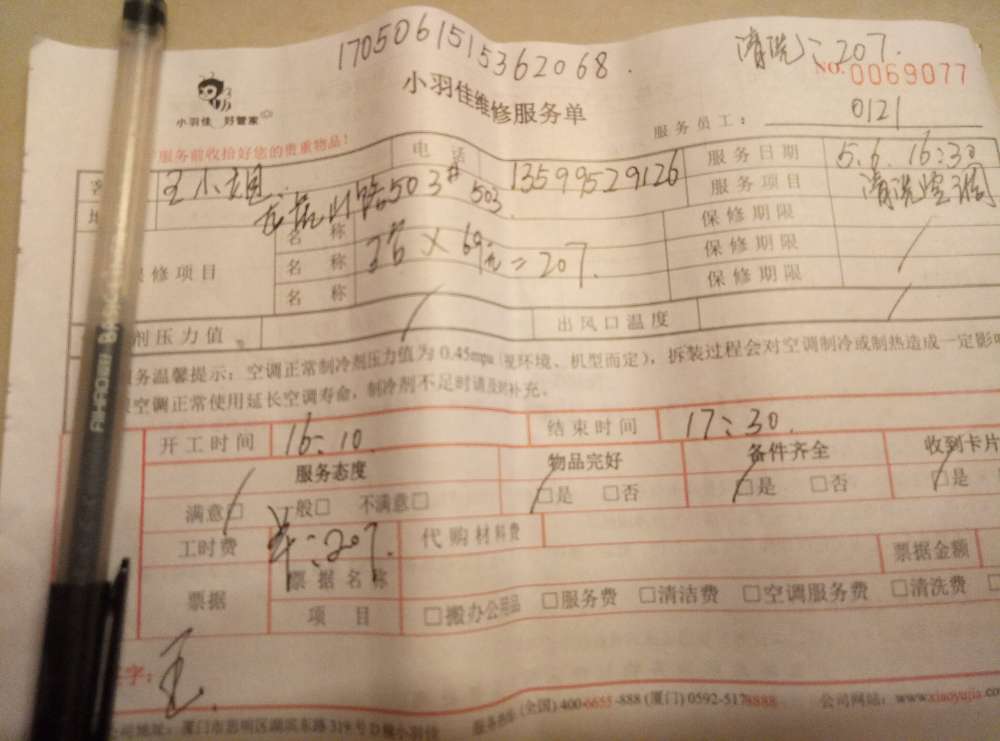 1705061515362068.
清洗:207.
NO.0069077
小羽佳维修服务单
小羽佳 好管家
服务员工: 0121
服务前收拾好您的贵重物品!
客 王小姐 电话 13599529126 服务日期 5.6. 16:30
地 503# 503. 服务项目 清洗空调
名称 保修期限
保修项目 名称 3台×69元=207. 保修期限
名称 保修期限
剂压力值 出风口温度
服务温馨提示:空调正常制冷剂压力值为0.45mpa(视环境、机型而定),拆装过程会对空调制冷或制热造成一定影响
空调正常使用延长空调寿命,制冷剂不足时请及时补充。
开工时间 16:10 结束时间 17:30
服务态度 物品完好 备件齐全 收到卡片
满意□ 一般□ 不满意□ □是 □否 □是 □否 □是
工时费 207. 代购材料费
票据 票据名称 票据金额
项目 □搬办公用品 □服务费 □清洁费 □空调服务费 □清洗费
字: 王
公司地址:厦门市思明区湖滨东路319号D幢小羽佳 服务热线 (全国)400-6655-888 (厦门)0592-5178888 公司网站:www.xiaoyujia.com